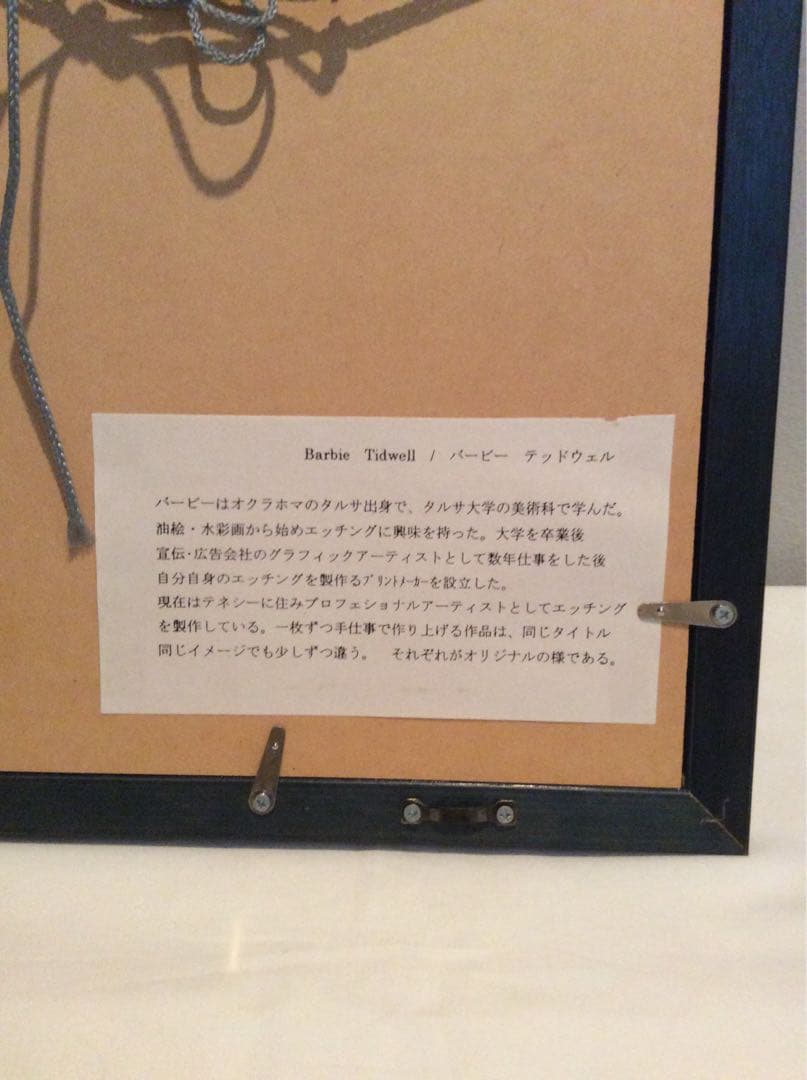 Barbie Tidwell / バービー テッドウェル
バービーはオクラホマのタルサ出身で、タルサ大学の美術科で学んだ。
油絵・水彩画から始めエッチングに興味を持った。大学を卒業後
宣伝・広告会社のグラフィックアーティストとして数年仕事をした後
自分自身のエッチングを製作るプリントメーカーを設立した。
現在はテネシーに住みプロフェショナルアーティストとしてエッチング
を製作している。一枚ずつ手仕事で作り上げる作品は、同じタイトル
同じイメージでも少しずつ違う。 それぞれがオリジナルの様である。